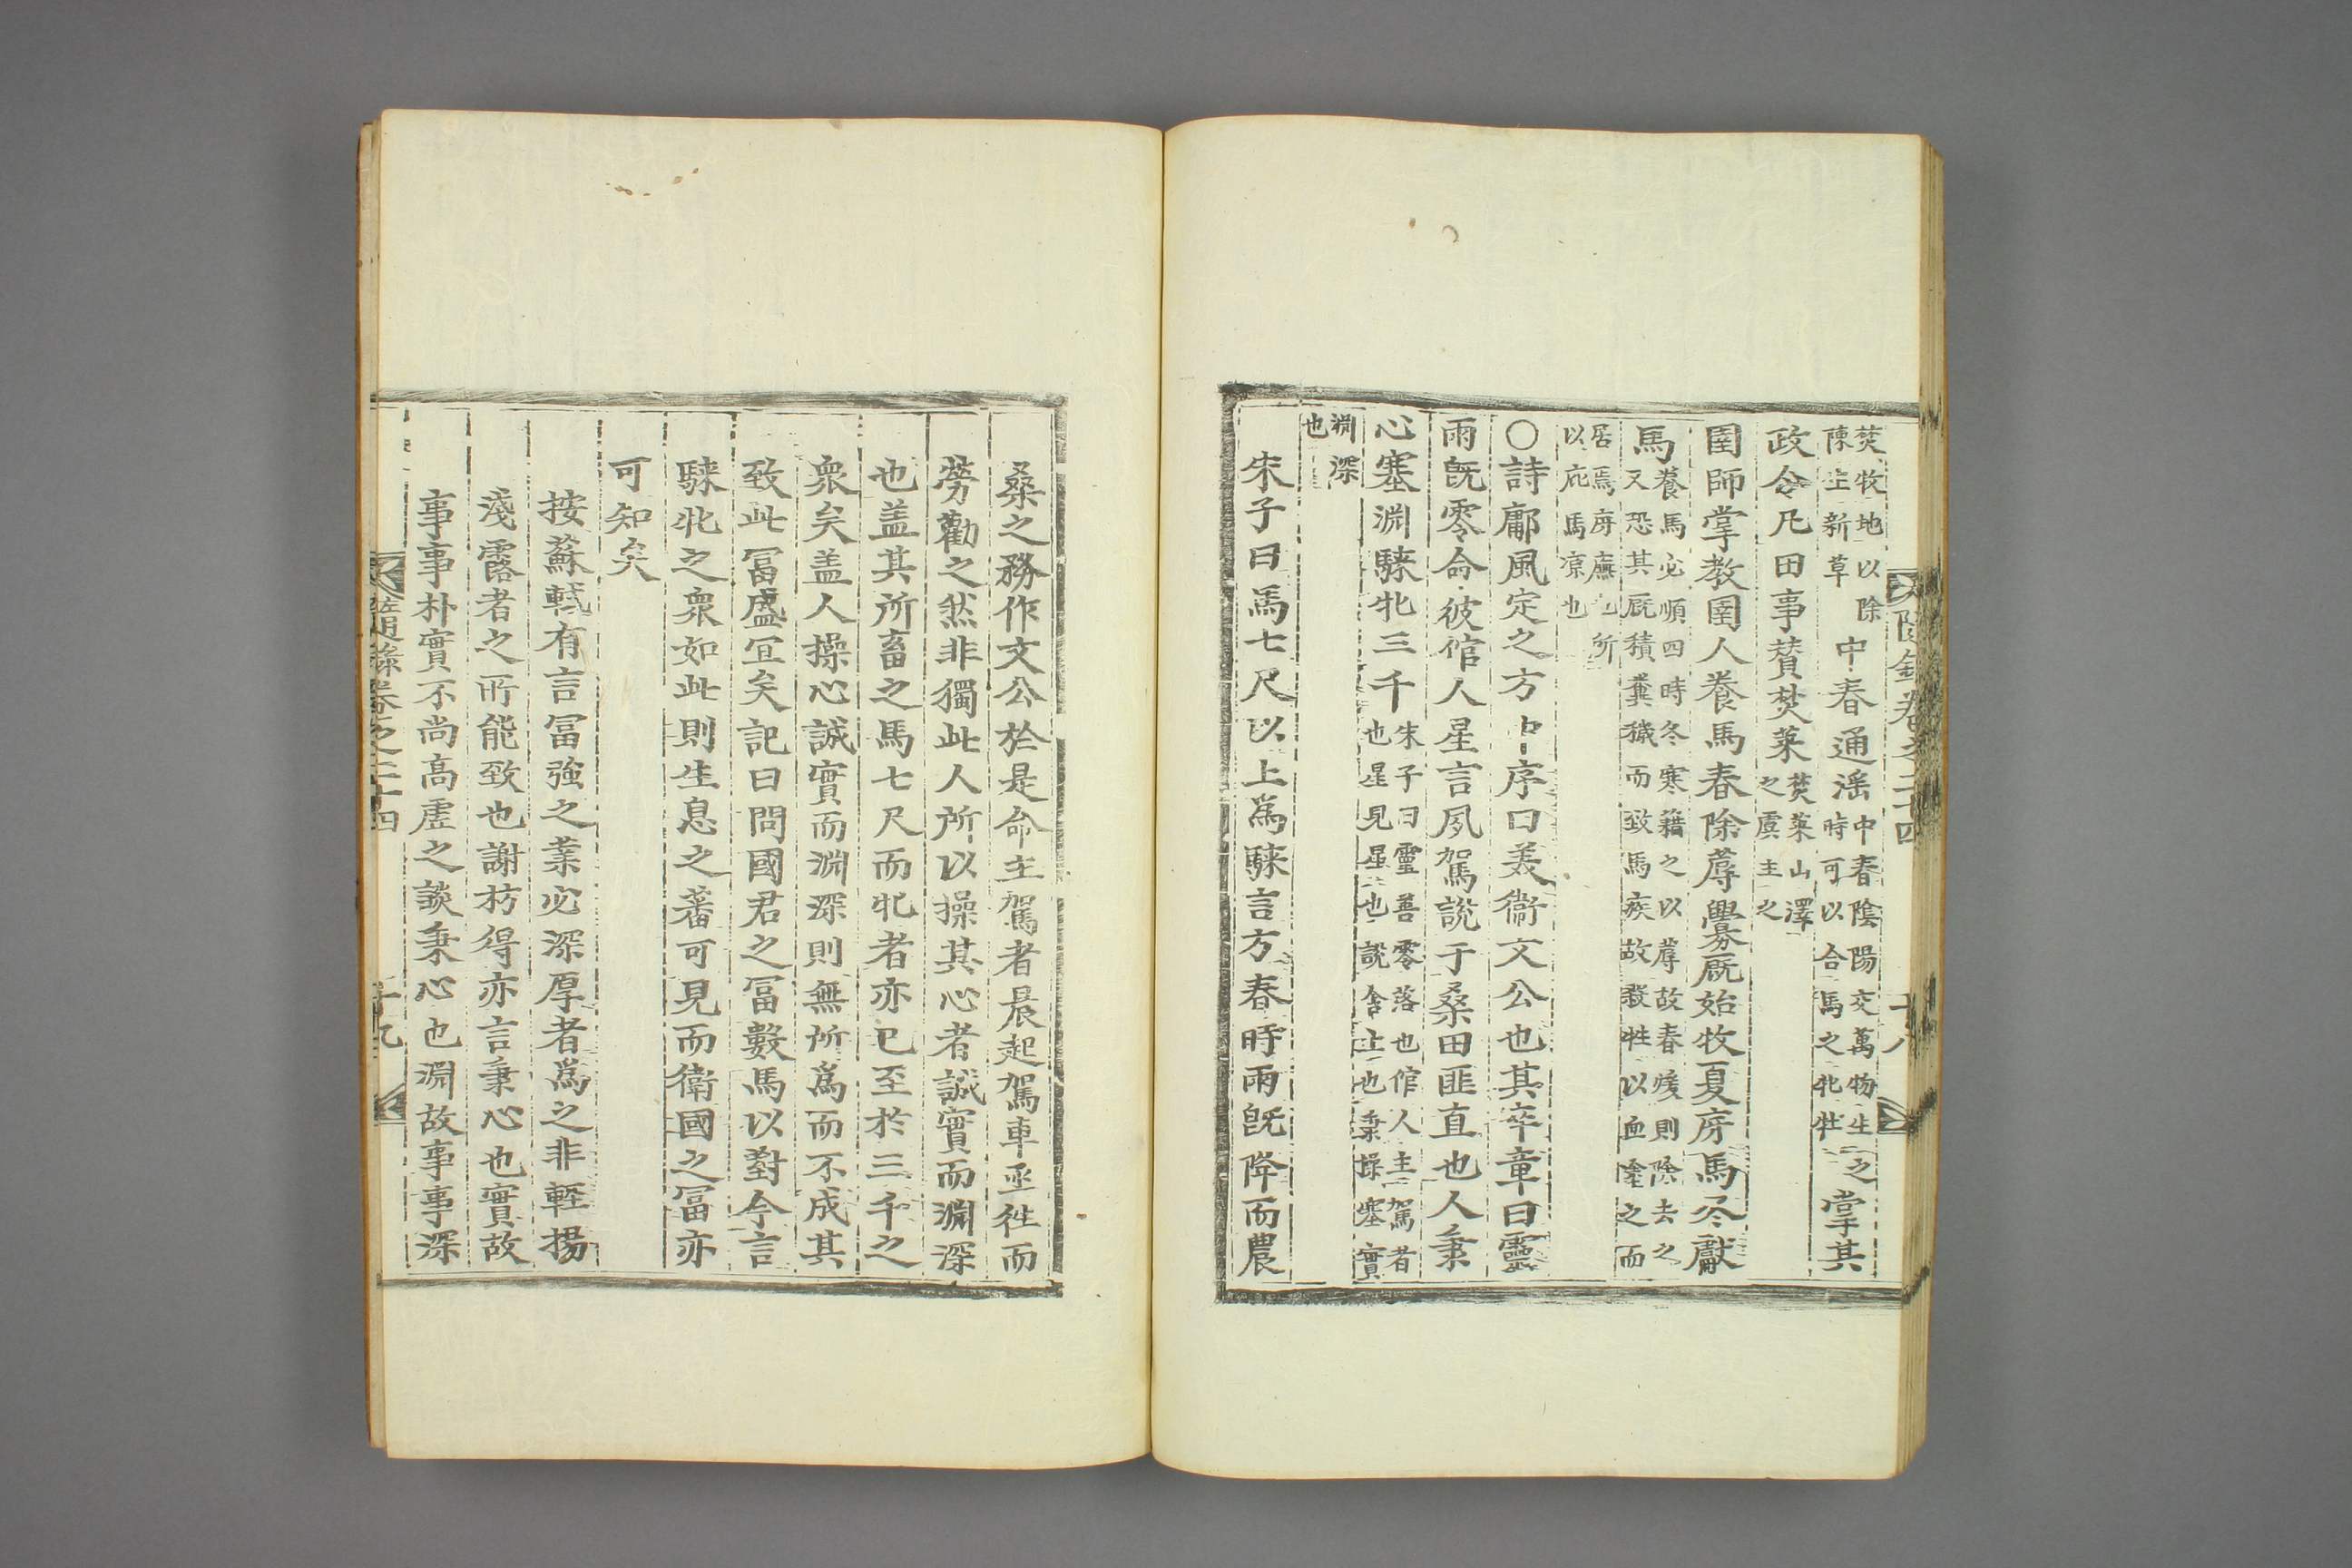 焚牧地以除
陳生新草
中春通滛
中春陰陽交萬物生
時可以合馬之牝牡
之掌其
政令凡田事賛焚萊
焚萊山澤
之虞主之
圉師掌教圉人養馬春除蓐釁厩始牧夏房馬冬獻
馬
養馬必順四時冬寒藉之以蓐故春煖則除去之
又恐其厩積糞穢而致馬疾故殺牲以血塗之而
居焉房廡也所
以庇馬凉也
○詩鄘風定之方中序曰美衞文公也其卒章曰靈
雨旣零命彼倌人星言夙駕說于桑田匪直也人秉
心塞淵騋牝三千
朱子曰靈善零落也倌人主駕者
也星見星也說舍止也秉操塞實
淵深
也
朱子曰馬七尺以上爲騋言方春時雨旣降而農
桑之務作文公於是命主駕者晨起駕車亟徃而
勞勸之然非獨此人所以操其心者誠實而淵深
也盖其所畜之馬七尺而牝者亦已至於三千之
衆矣盖人操心誠實而淵深則無所爲而不成其
致此冨盛冝矣記曰問國君之冨數馬以對今言
騋牝之衆如此則生息之蕃可見而衛國之冨亦
可知矣
按蘇軾有言冨強之業必深厚者爲之非輕揚
淺露者之所能致也謝枋得亦言秉心也實故
事事朴實不尚高虛之談秉心也淵故事事深
録卷之二十四
十九
卷之二十四
十八